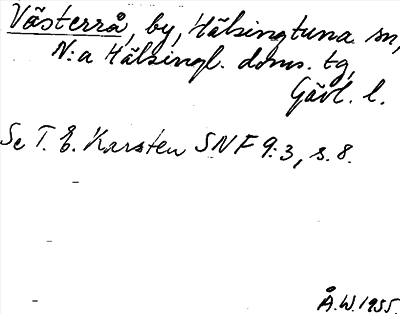 Västerrå, by, Hälsingtuna sn,
N:a Hälsingl. doms. tg,
Gävl. l.
Se T. E. Karsten SNF 9:3, s. 8.
Å.W. 1955.